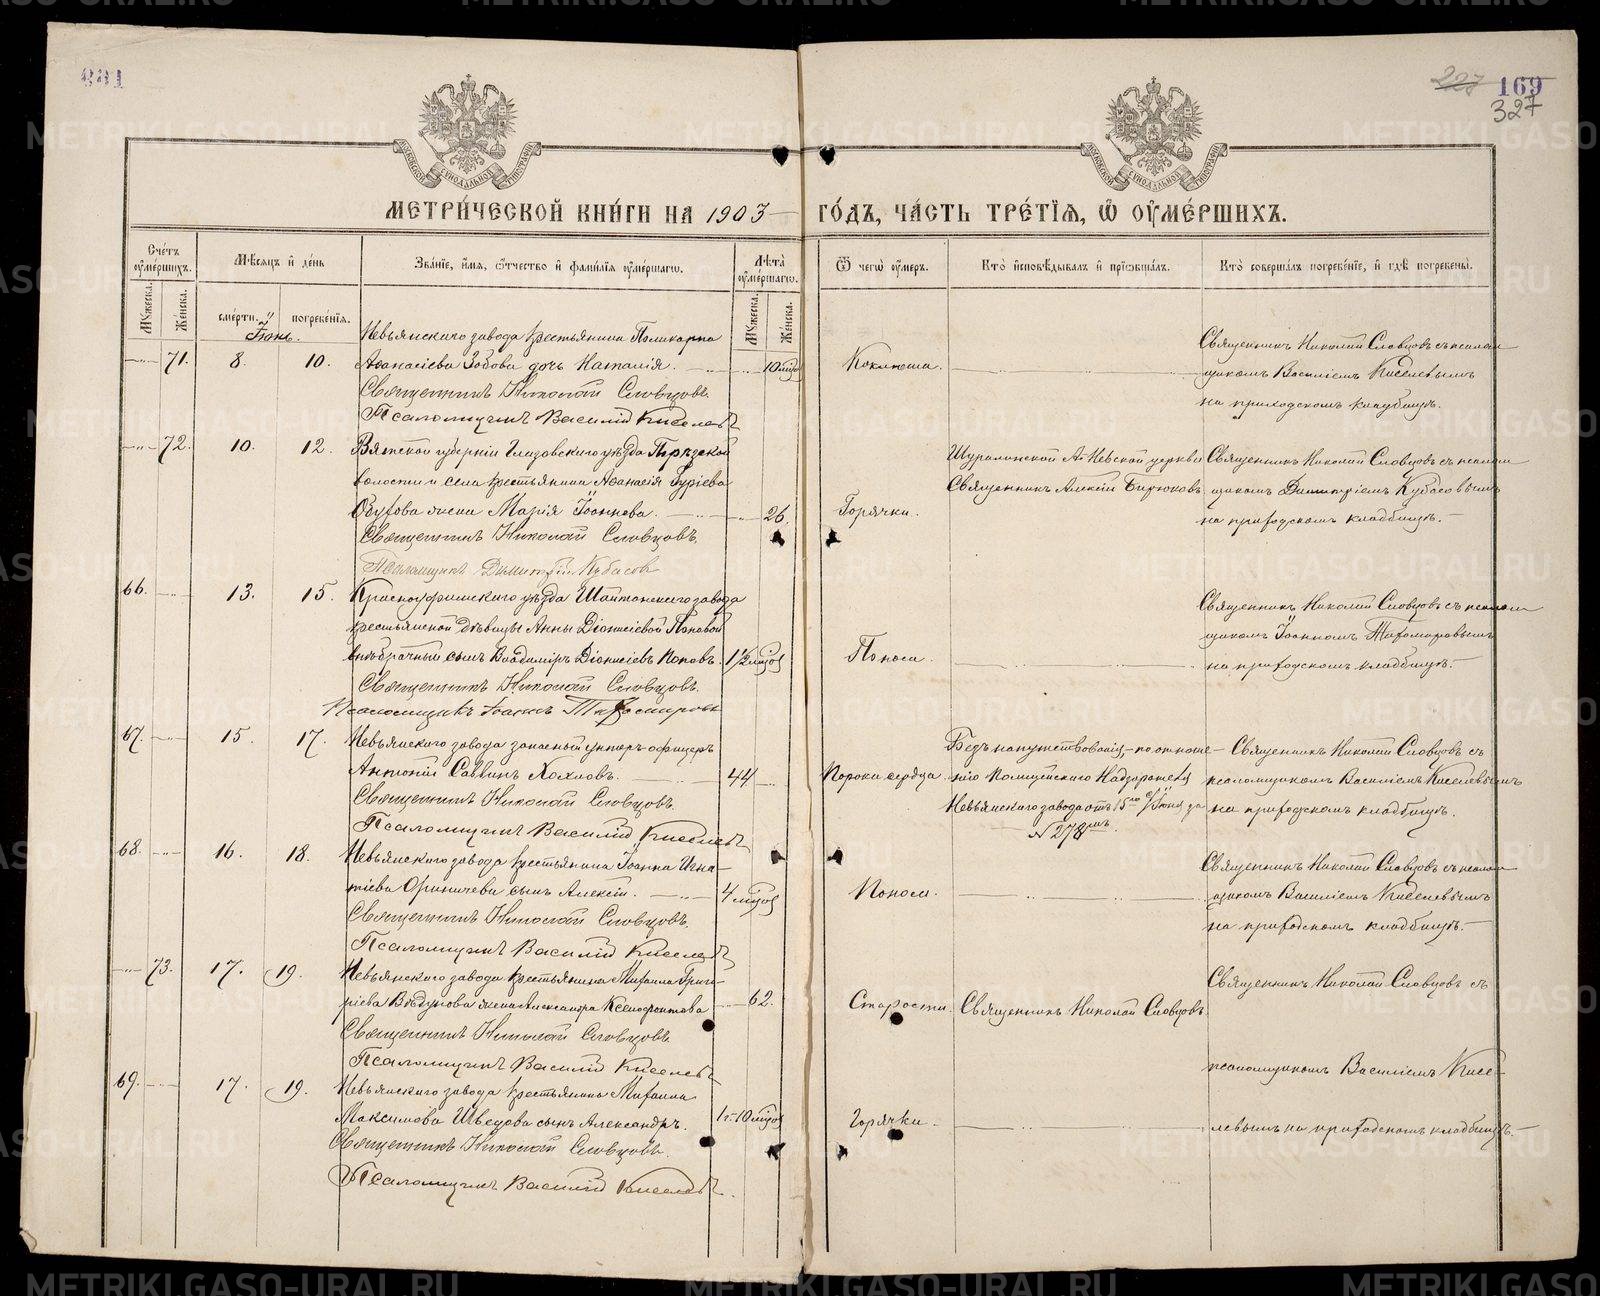 891
227 169
327
МОСКОВСКОЙ СѴНОДАЛЬНОЙ ТИПОГРАФІИ
МОСКОВСКОЙ СѴНОДАЛЬНОЙ ТИПОГРАФІИ
МЕТРИ́ЧЕСКОЙ КНИ́ГИ НА 1903 ГО́ДЪ, ЧА́СТЬ ТРЕ́ТІѦ, Ѡ҆ ОУ҆МЕ́РШИХЪ.
Сче́тъ оу҆ме́ршихъ.
Мѣ́сяцъ и҆ де́нь
Зва́нїе, и҆́мя, ѻ҆́тчество и҆ фами́лїя оу҆ме́ршагѡ.
Лѣ́та оу҆ме́ршагѡ.
Ѿ чегѡ̀ оу҆́меръ.
Кто̀ и҆сповѣ́дывалъ и҆ прїѡбща́лъ.
Кто̀ соверша́лъ погребе́нїе, и҆ гдѣ̀ погребены̀.
Мꙋ́жеска. Же́нска. сме́рти. погребе́нїя. Мꙋ́жеска. Же́нска.
Іюнь.
71. 8. 10. Невьянскаго завода крестьянина Поликарпа
Аѳанасіева Зобова дочь Наталія. 10 мѣс.
Священникъ Николай Словцовъ.
Псаломщикъ Василій Киселевъ
Коклюша.
Священникъ Николай Словцовъ съ псалом
щикомъ Василіемъ Киселевымъ
на приходскомъ кладбищѣ.
72. 10. 12. Вятской губерніи Глазовскаго уѣзда
волости и села крестьянина Аѳанасія Гуріева
жена Марія Іоаннова. 26.
Священникъ Николай Словцовъ.
Псаломщикъ Димитрій Кубасов
Горячки.
Шуралинской А-Невской церкви
Священникъ Алексій Бирюковъ
Священникъ Николай Словцовъ съ псалом
щикомъ Димитріемъ Кубасовымъ
на приходскомъ кладбищѣ.
66. 13. 15. Красноуфимскаго уѣзда Шайтанскаго завода
крестьянской дѣвицы Анны Діонисіевой Поповой
внѣбрачный сынъ Владиміръ Діонисіевъ Поповъ. 1 1/2 мѣс.
Священникъ Николай Словцовъ.
Псаломщикъ Іоаннъ Тихомировъ
Поноса.
Священникъ Николай Словцовъ съ псалом
щикомъ Іоанномъ Тихомировымъ
на приходскомъ кладбищѣ.
67. 15. 17. Невьянскаго завода запасный унтеръ-офицеръ
Антоній Саввинъ Хохловъ. 44
Священникъ Николай Словцовъ.
Псаломщикъ Василій Киселевъ
Порока сердца.
Безъ напутствованія по отноше-
нію Полицейскаго Надзирателя
Невьянскаго завода отъ 15го Іюня за
№ 278мъ.
Священникъ Николай Словцовъ съ
псаломщикомъ Василіемъ Киселевымъ
на приходскомъ кладбищѣ.
68. 16. 18. Невьянскаго завода крестьянина Іоанна Игна-
тіева сынъ Алексій. 4 мѣс.
Священникъ Николай Словцовъ.
Псаломщикъ Василій Киселевъ
Поноса.
Священникъ Николай Словцовъ съ псалом
щикомъ Василіемъ Киселевымъ
на приходскомъ кладбищѣ.
73. 17. 19. Невьянскаго завода крестьянина Михаила Григо-
ріева жена Александра Ксенофонтова 62.
Священникъ Николай Словцовъ
Псаломщикъ Василій Киселевъ
Старости.
Священникъ Николай Словцовъ.
Священникъ Николай Словцовъ съ
псаломщикомъ Василіемъ Кисе-
69. 17. 19. Невьянскаго завода крестьянина Михаила
Максимова Шведова сынъ Александръ. 1 г. 10 мѣс.
Священникъ Николай Словцовъ.
Псаломщикъ Василій Киселевъ.
Горячки.
левымъ на приходскомъ кладбищѣ.
METRIKI.GASO-URAL.RU